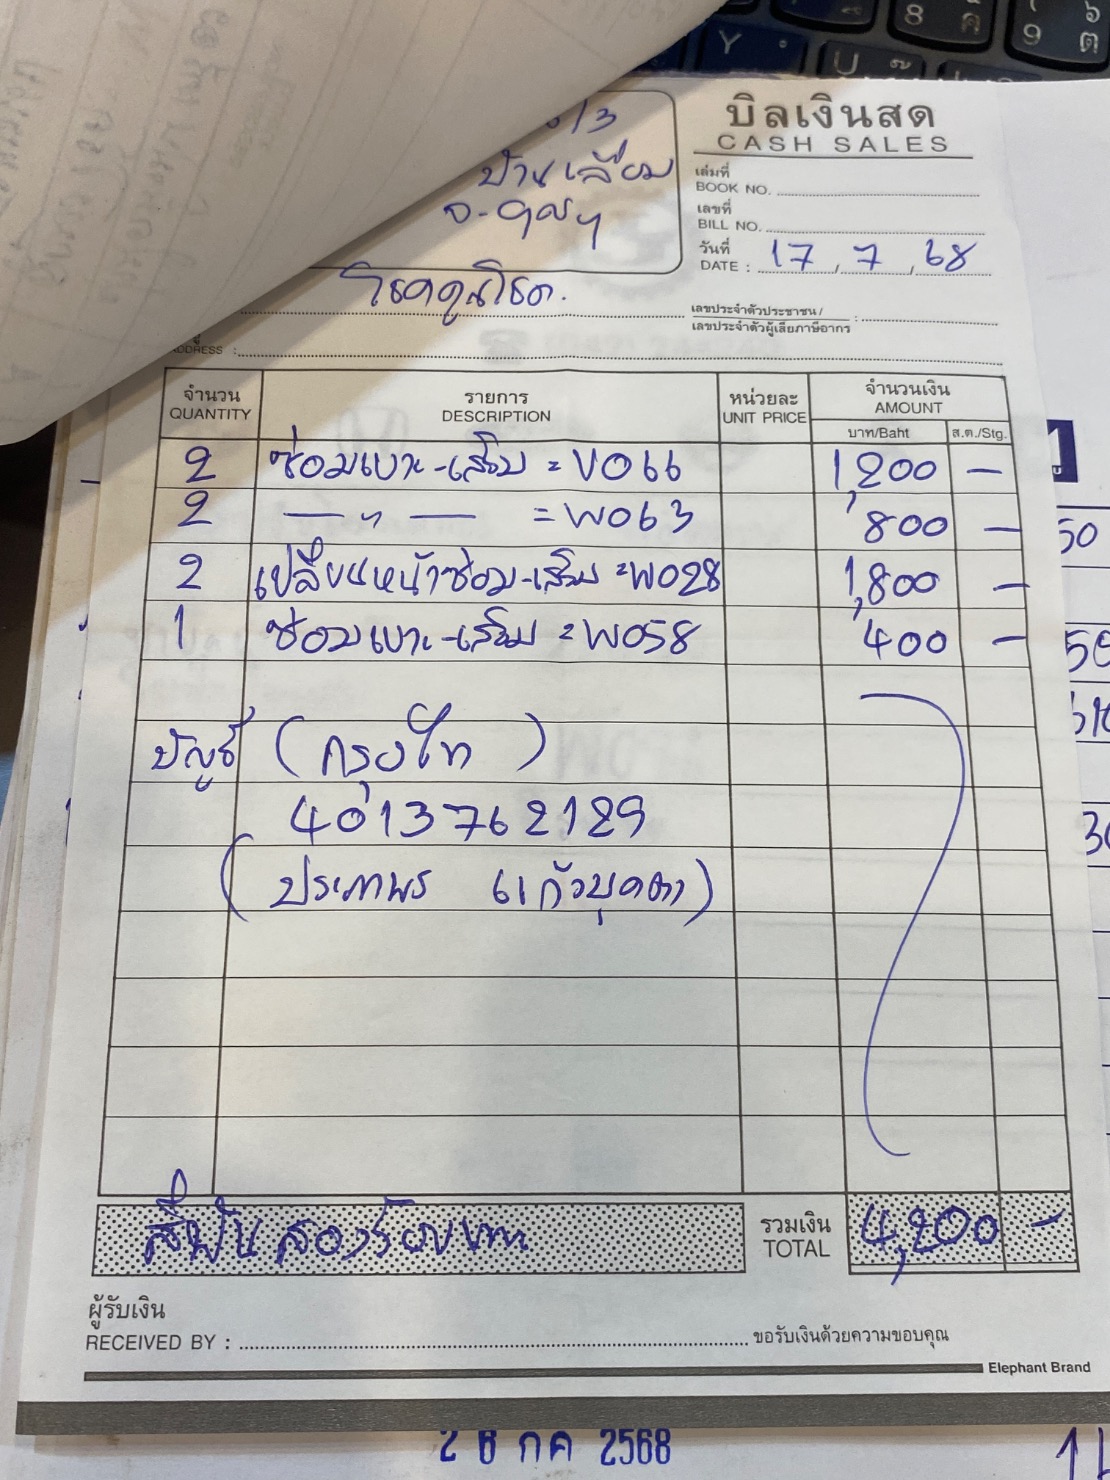 8 ค 9 ต
Y
บิลเงินสด
CASH SALES
/3
บ้านเลื่อม
จ-อุดรฯ
เล่มที่
BOOK NO.
เลขที่
BILL NO.
วันที่
DATE : 17 , 7 , 68
โชคคูณโชค.
เลขประจำตัวประชาชน /
เลขประจำตัวผู้เสียภาษีอากร :
ADDRESS :
จำนวน รายการ หน่วยละ จำนวนเงิน
QUANTITY DESCRIPTION UNIT PRICE AMOUNT
บาท/Baht ส.ต./Stg.
2 ซ่อมเบาะ-เสริม = V066 1,200 -
2 — " — = W063 800 -
2 เปลี่ยนหน้าซ่อม-เสริม = W028 1,800 -
1 ซ่อมเบาะ-เสริม = W058 400 -
บัญชี ( กรุงไท )
4013762129
( ประภาพร แก้วบุดตา )
สี่พันสองร้อยบาท รวมเงิน 4,200 -
TOTAL
ผู้รับเงิน
RECEIVED BY : ขอรับเงินด้วยความขอบคุณ
Elephant Brand
2 6 กค 2568